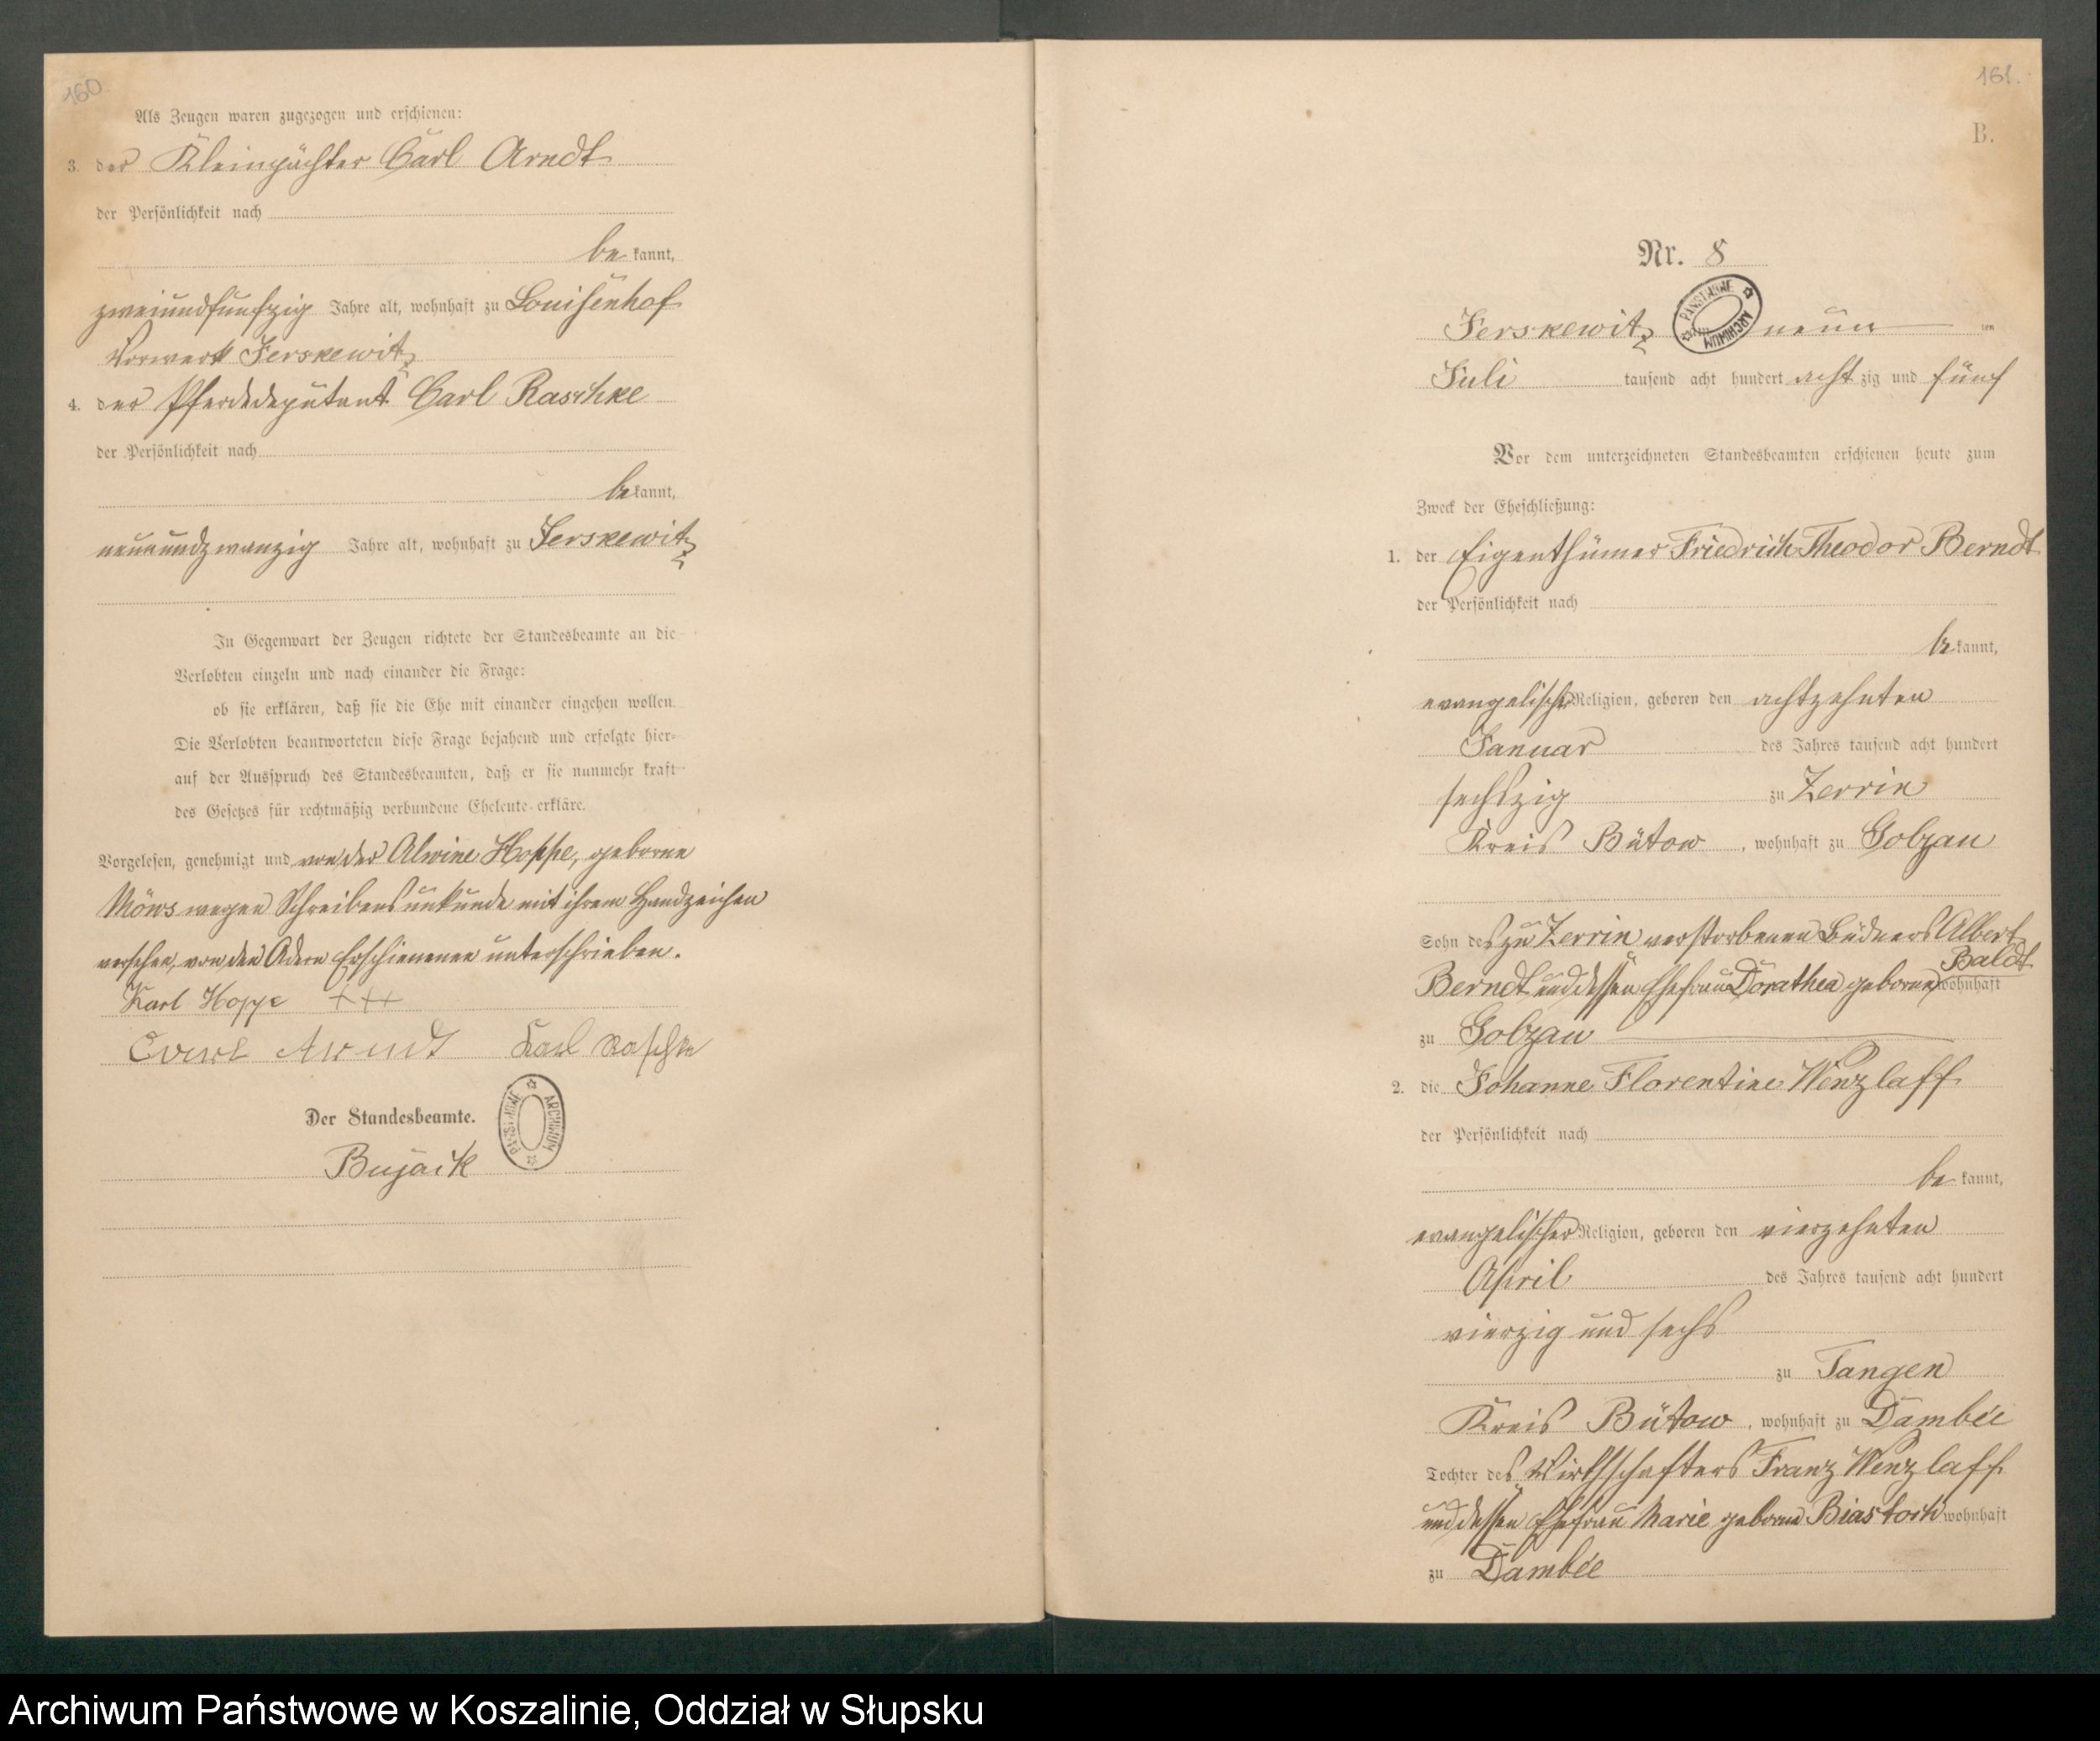 160
Als Zeugen waren zugezogen und erschienen:
3. der Kleinpächter Carl Arndt
der Persönlichkeit nach
be kannt,
zweiundfunfzig Jahre alt, wohnhaft zu Louisenhof
Vorwerk Jerskewitz
4. der Pferdedeputant Carl Raschke
der Persönlichkeit nach
be kannt,
neunundzwanzig Jahre alt, wohnhaft zu Jerskewitz
In Gegenwart der Zeugen richtete der Standesbeamte an die
Verlobten einzeln und nach einander die Frage:
ob sie erklären, daß sie die Ehe mit einander eingehen wollen.
Die Verlobten beantworteten diese Frage bejahend und erfolgte hier-
auf der Ausspruch des Standesbeamten, daß er sie nunmehr kraft
des Gesetzes für rechtmäßig verbundene Eheleute erkläre.
Vorgelesen, genehmigt und von der Alwine Hoppe, geborne
Möws wegen Schreibensunkunde mit ihrem Handzeichen
versehen, von den Adern Erschienenen unterschrieben.
Karl Hoppe +++
Carl Arndt Karl Raschke
Der Standesbeamte.
ARCHIWUM PAŃSTWOWE
Bujack
161.
B.
Nr. 8
Jerskewitz neun ten
ARCHIWUM PAŃSTWOWE
Juli tausend acht hundert acht zig und fünf
Vor dem unterzeichneten Standesbeamten erschienen heute zum
Zweck der Eheschließung:
1. der Eigenthümer Friedrich Theodor Berndt
der Persönlichkeit nach
be kannt,
evangelischer Religion, geboren den achtzehnten
Januar des Jahres tausend acht hundert
sechszig zu Zerrin
Kreis Bütow, wohnhaft zu Golzau
Sohn des zu Zerrin verstorbenen Büdners Albert
Berndt und dessen Ehefrau Dorathea geborne Baldt wohnhaft
zu Golzau
2. die Johanne Florentine Wenzlaff
der Persönlichkeit nach
be kannt,
evangelischer Religion, geboren den vierzehnten
April des Jahres tausend acht hundert
vierzig und sechs
zu Tangen
Kreis Bütow, wohnhaft zu Dambée
Tochter des Wirthschafters Franz Wenzlaff
und dessen Ehefrau Marie geborne Biastoch wohnhaft
zu Dambée
Archiwum Państwowe w Koszalinie, Oddział w Słupsku